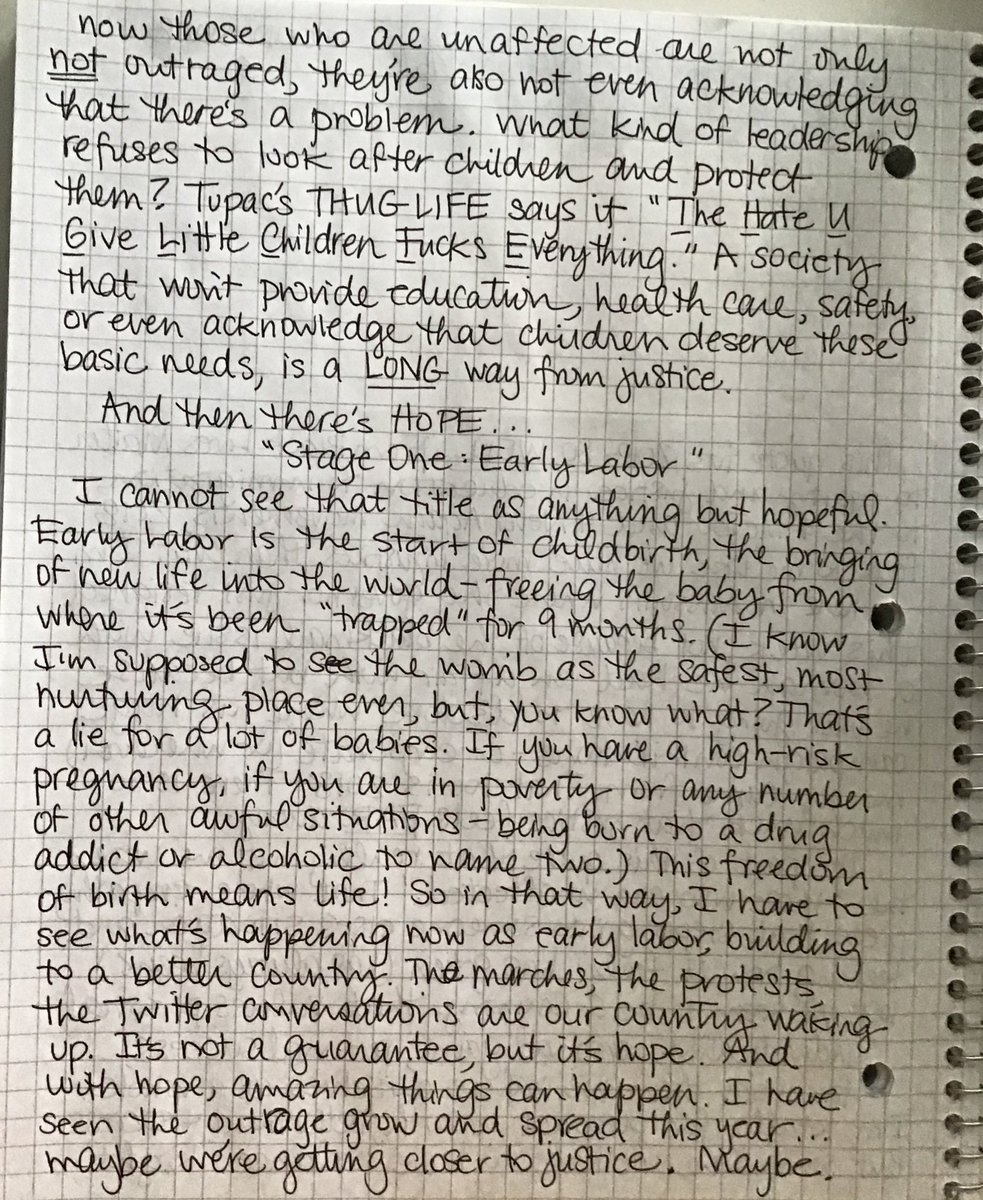 now those who are unaffected are not only
not outraged, they're also not even acknowledging
that there's a problem. What kind of leadership
refuses to look after children and protect
them? Tupac's THUG LIFE says it "The Hate U
Give Little Children Fucks Everything." A society
that won't provide education, health care, safety,
or even acknowledge that children deserve these
basic needs, is a LONG way from justice.
And then there's HOPE...
"Stage One: Early Labor"
I cannot see that title as anything but hopeful.
Early Labor is the start of childbirth, the bringing
of new life into the world - freeing the baby from
where it's been "trapped" for 9 months. (I know
I'm supposed to see the womb as the safest, most
nurturing place ever, but, you know what? That's
a lie for a lot of babies. If you have a high-risk
pregnancy, if you are in poverty or any number
of other awful situations - being born to a drug
addict or alcoholic to name two.) This freedom
of birth means life! So in that way, I have to
see what's happening now as early labor, building
to a better country. The marches, the protests,
the Twitter conversations are our country waking
up. It's not a guarantee, but it's hope. And
with hope, amazing things can happen. I have
seen the outrage grow and spread this year...
maybe we're getting closer to justice. Maybe.